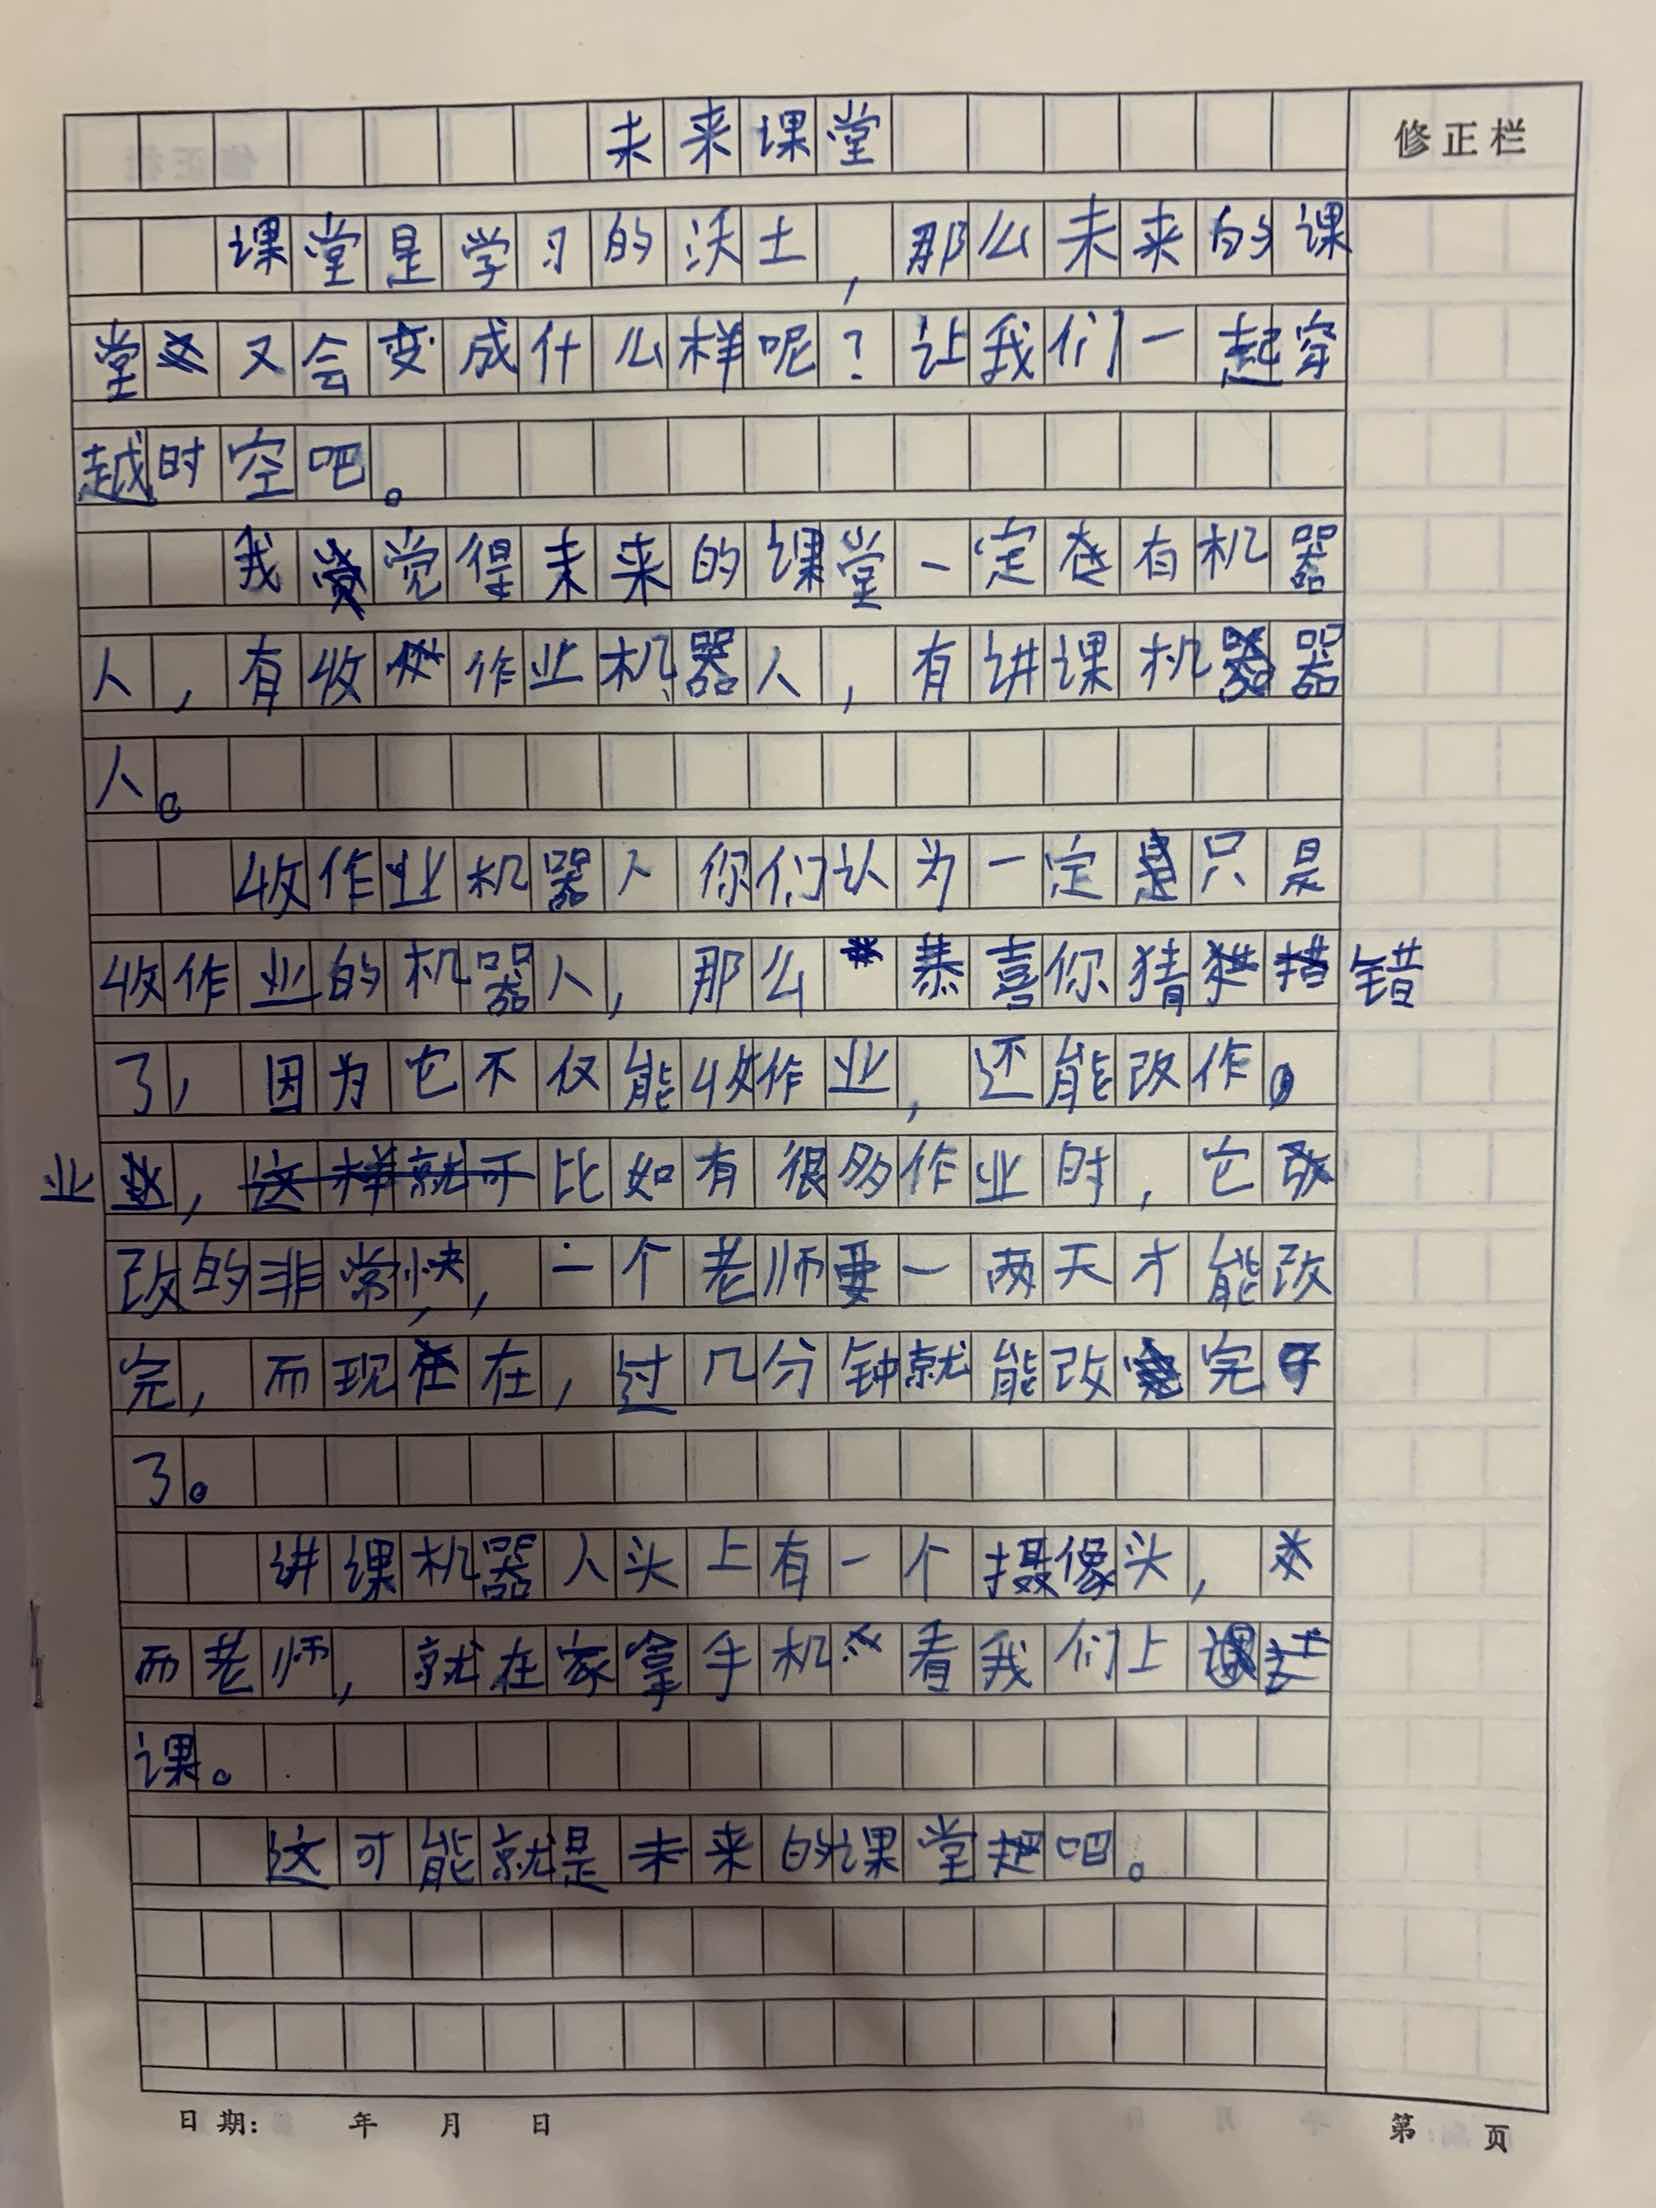 未来课堂
修正栏
课堂是学习的沃土，那么未来的课
堂又会变成什么样呢？让我们一起穿
越时空吧。
我觉得未来的课堂一定会有机器
人，有收作业机器人，有讲课机器
人。
收作业机器人你们认为一定只是
收作业的机器人，那么恭喜你猜错
了，因为它不仅能收作业，还能改作
业，比如有很多作业时，它
改的非常快，一个老师要一两天才能改
完，而现在，过几分钟就能改完
了。
讲课机器人头上有一个摄像头，
而老师，就在家拿手机看我们上
课。
这可能就是未来的课堂吧。
日期： 年 月 日
第 页